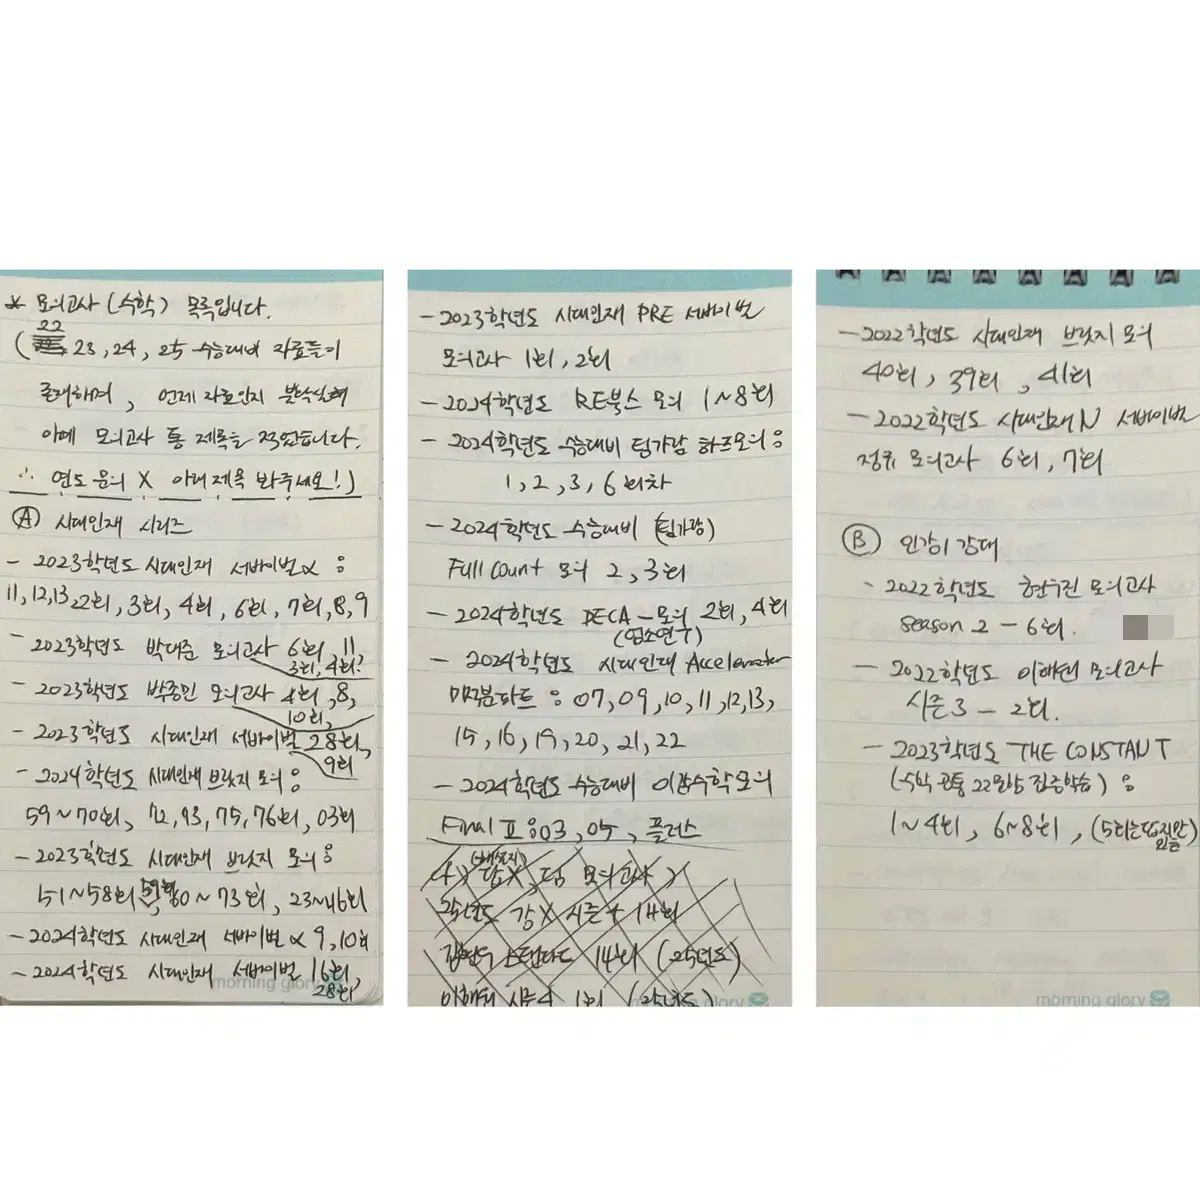 * 모의고사(수학) 목록입니다.
22
( 23, 24, 25 수능대비 자료들이
존재하며, 언제 자료인지
아예 모의고사 통 제목을 적었습니다.
∴ 연도 문의 X 아래 제목 봐주세요!)
Ⓐ 시대인재 시리즈
- 2023학년도 시대인재 서바이벌 α :
11, 12, 13, 2회, 3회, 4회, 6회, 7회, 8, 9
- 2023학년도 박대준 모의고사 6회, 11
3회, 4회?
- 2023학년도 박종민 모의고사 4회, 8,
10회,
- 2023학년도 시대인재 서바이벌 28회,
9회
- 2024학년도 시대인재 브릿지 모의 :
59~70회, 72, 93, 75, 76회, 03회
- 2023학년도 시대인재 브릿지 모의 :
51~58회, 59회, 60~73회, 23~46회
- 2024학년도 시대인재 서바이벌 α 9, 10회
- 2024학년도 시대인재 서바이벌 16회,
28회
morning glory
- 2023학년도 시대인재 PRE 서바이벌
모의고사 1회, 2회
- 2024학년도 RE북스 모의 1~8회
- 2024학년도 수능대비 팀가람 하프모의 :
1, 2, 3, 6회차
- 2024학년도 수능대비 (팀가람)
Full count 모의 2, 3회
- 2024학년도 DECA - 모의 2회, 4회
(염소연구)
- 2024학년도 시대인재 Accelerator
미적분파트 : 07, 09, 10, 11, 12, 13,
15, 16, 19, 20, 21, 22
- 2024학년도 수능대비 이감수학모의
Final 표 : 03, 05, 플러스
답X, 덤 모의고사)
25년도 강X 시즌4 14회
김현우 스탠다드 14회 (25년도)
이해원 시즌4 1회 (25년도)
morning glory
- 2022학년도 시대인재 브릿지 모의
40회, 39회, 41회
- 2022학년도 시대인재N 서바이벌
정규 모의고사 6회, 7회
Ⓑ 인강 / 강대
- 2022학년도 현우진 모의고사
season 2 - 6회.
- 2022학년도 이해원 모의고사
시즌3 - 2회.
- 2023학년도 THE CONSTANT
(수학 공통 22문항 집중학습) :
1~4회, 6~8회, (5회는 답지만
있음)
morning glory